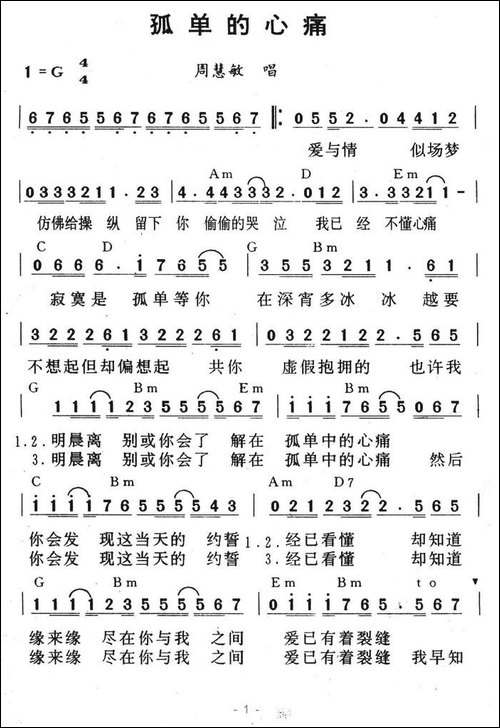 孤单的心痛
1=G 4/4 周慧敏 唱
6765567676556 7 0552.04412
爱与情 似场梦
Am D Em
0333211.23 4.443332.012 3.33211-
仿佛给操 纵 留下 你 偷偷的哭 泣 我已 经 不懂心痛
C D G Bm
0666.i7655 3553211.61
寂寞是 孤单等你 在深宵多冰 冰 越要
3222613222 61 0322 1022.565
不想起但却偏想起 共你 虚假抱拥的 也许我
G Bm Em Bm
1111235555567 iii7655067
1.2.明晨离 别或你会了 解在 孤单中的心痛
3.明晨离 别或你会了 解在 孤单中的心痛 然后
C Bm Am D7
iiii765555543 0212123.567
你会发 现这当天的 约誓 1.2.经已看懂 却知道
你会发 现这当天的 约誓 3.经已看懂 却知道
G Bm Em Bm to
1111235555567 0iii765.567
缘来缘 尽在你与我 之间 爱已有着裂缝
缘来缘 尽在你与我 之间 爱已有着裂缝 我早知
- 1 -